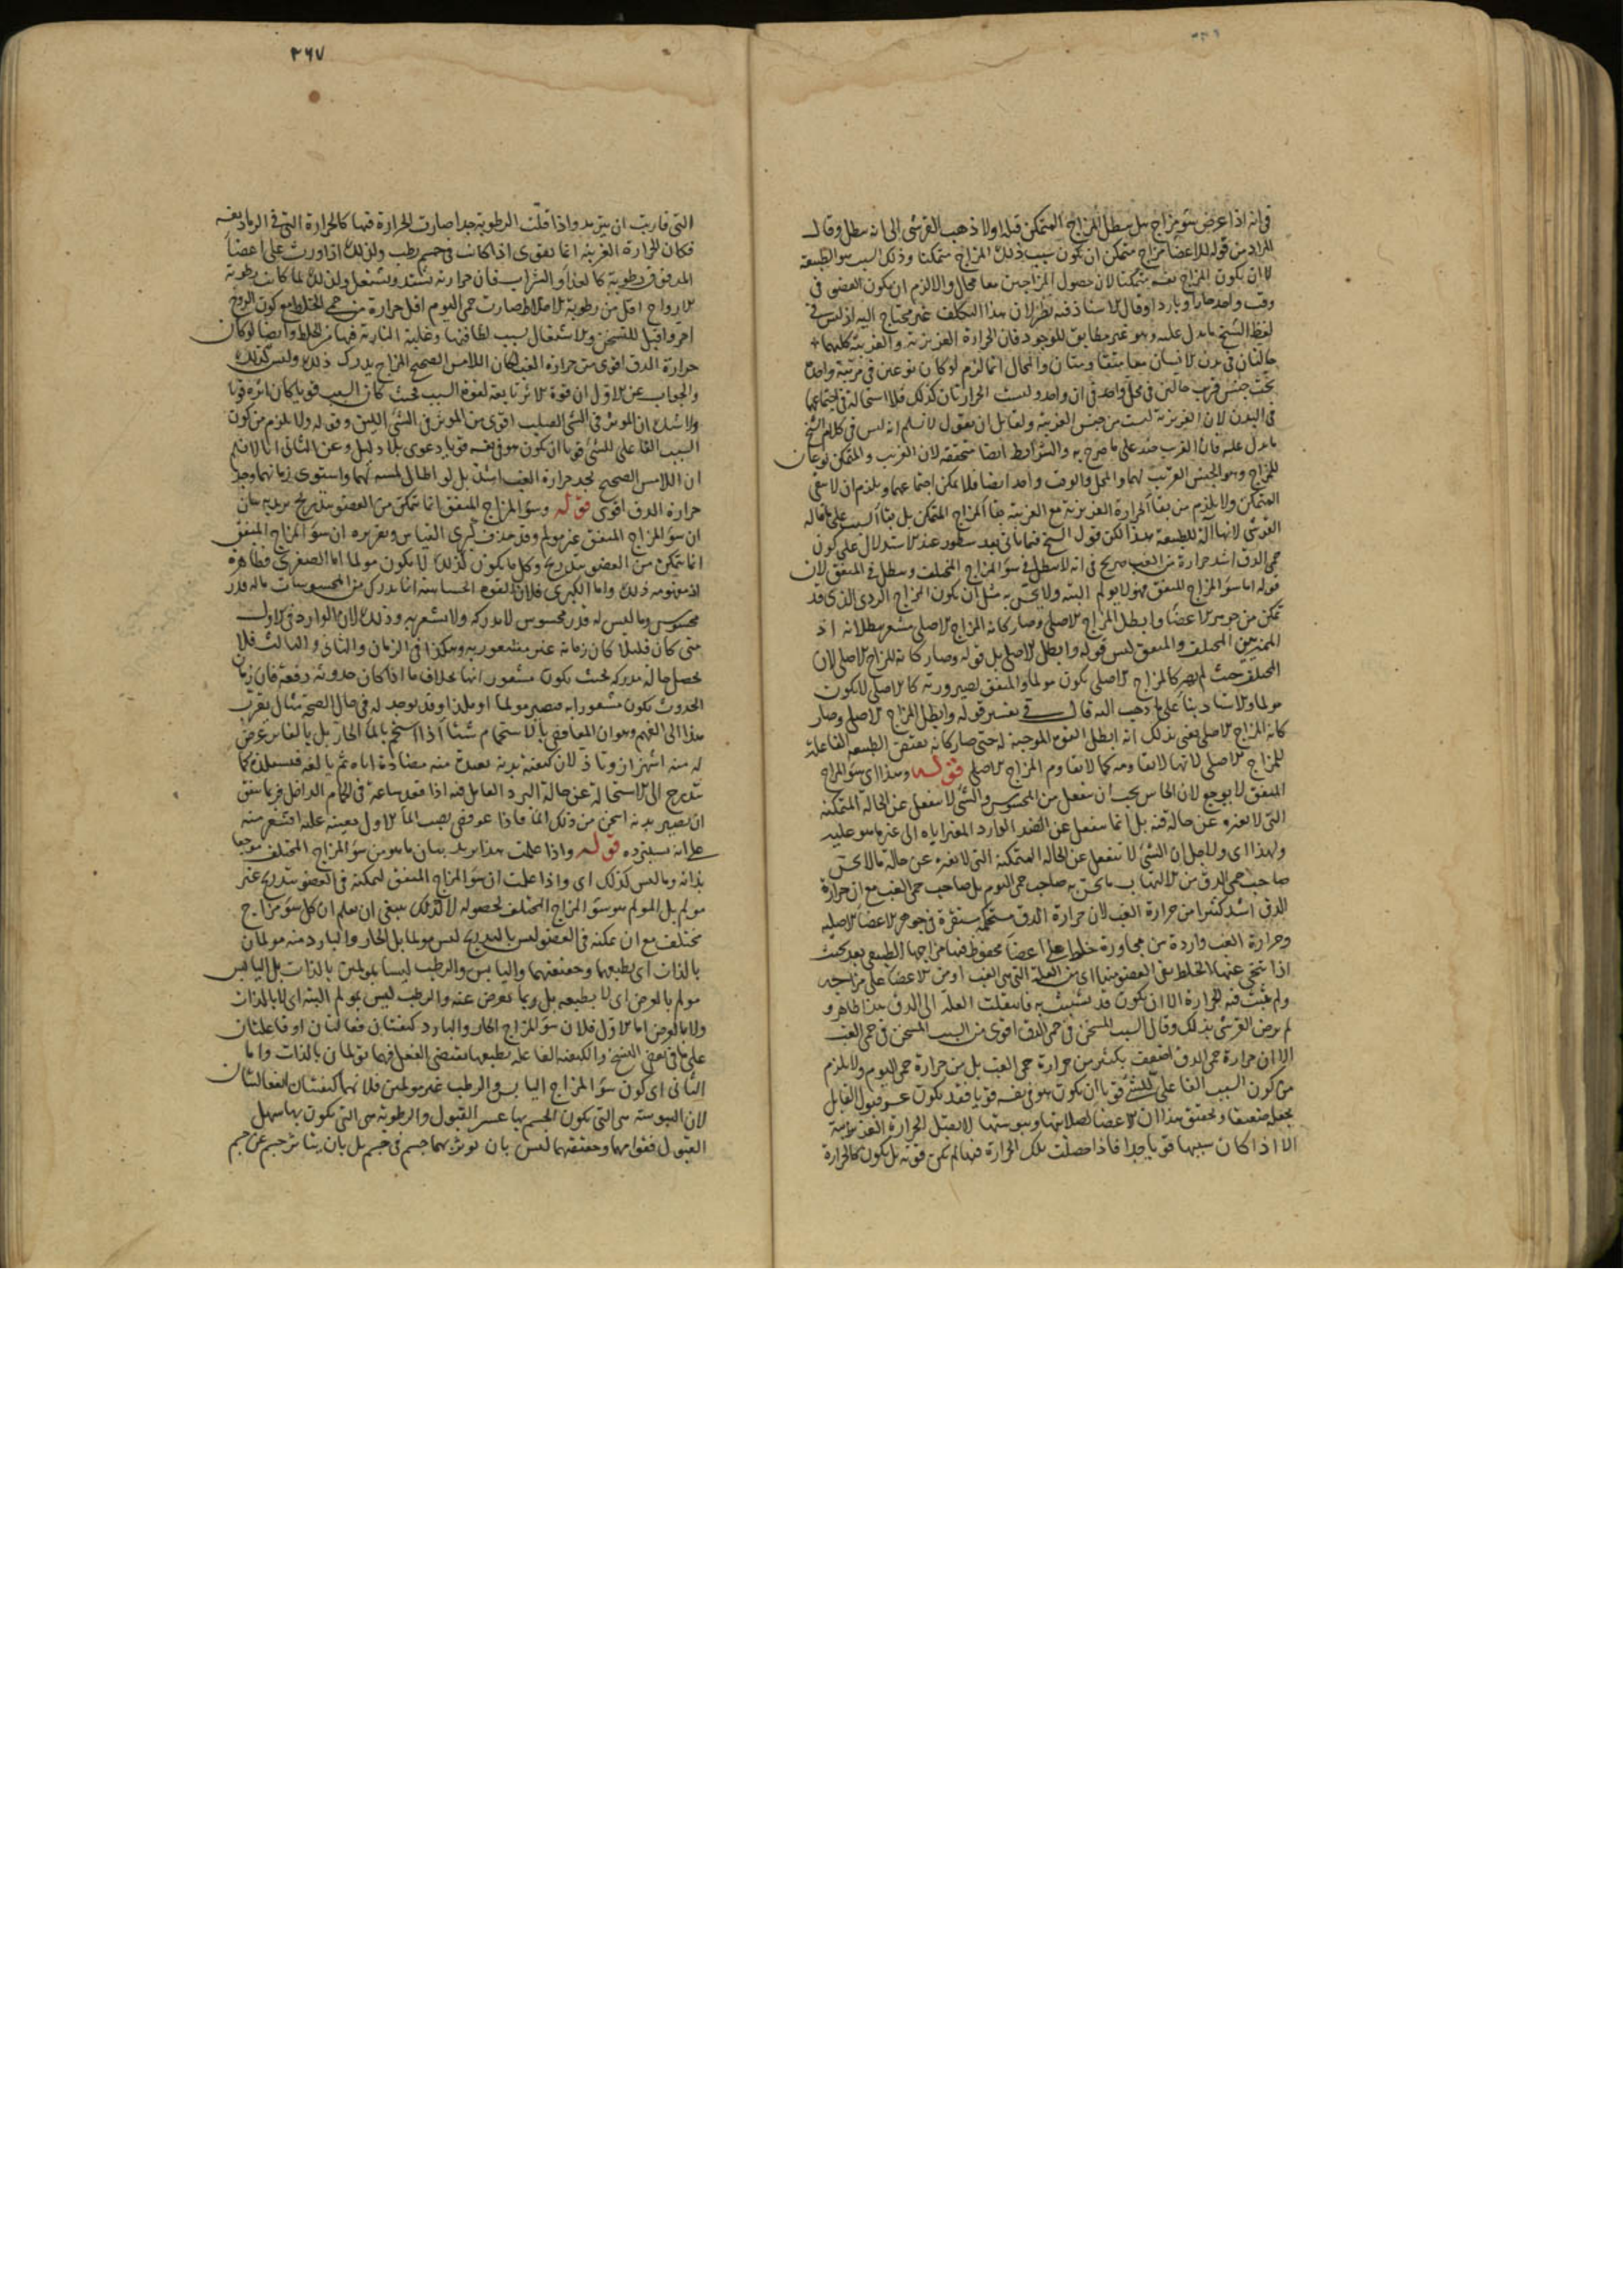 ٢٦٧
في انه اذا عرض سؤ مزاج هل يبطل المزاج المتمكن قبله اولا ذهب القرشي الى انه يبطل وقال
المراد من قوله للاعضا مزاج متمكن ان يكون سبب ذلك المزاج متمكنا وذلك السبب هو الطبيعة
لا ان يكون المزاج نفسه متمكنا لان حصول المزاجين معا محال والا لزم ان يكون العضو في
وقت واحد حارا وباردا وقال الاستاذ فيه نظر لان هذا التكلف غير محتاج اليه اذ ليس في
لفظ الشيخ ما يدل عليه وهو غير مطابق للوجود فان الحرارة الغريزية والغريبة كليهما
حالتان في بدن الانسان معا متفاوتتان والمحال انما لزم لو كان نوعين في مرتبة واحدة
تحت جنس قريب حالين في محل واحد في ان واحد وليست الحرارتان كذلك فلا استحالة في اجتماعهما
في البدن لان الغريزية ليست من جنس الغريبة ولقابل ان يقول لا نسلم انه ليس في كلام الشيخ
ما يدل عليه فان الغريب ضد على ما صرح به والشرايط ايضا متحققة لان الغريب والمتمكن نوعان
للمزاج وهو الجنس القريب لهما والمحل والوقت واحد ايضا فلا يمكن اجتماعهما ويلزم ان لا يبقى
المتمكن ولا يلزم من بقا الحرارة الغريزية مع الغريبة بقا المزاج المتمكن بل بقا السبب على ما قاله
القرشي لانها آلة للطبيعة هذا لكن قول الشيخ فيما ياتي بعد سطور عند الاستدلال على كون
حمى الدق اشد حرارة من الغب صريح في انه لا يبطل في سؤ المزاج المختلف ويبطل في المتفق لان
قوله اما سؤ المزاج المتفق فهو لا يولم البتة ولا يحس به مثل ان يكون المزاج الردي الذي قد
تمكن من جوهر الاعضا وابطل المزاج الاصلي وصار كانه المزاج الاصلي مشعر ببطلانه اذ
المميز بين المختلف والمتفق ليس قوله وابطل الاصلي بل قوله وصار كانه المزاج الاصلي لان
المختلف حيث لم يصر كالمزاج الاصلي يكون مولما والمتفق لصيرورته كالاصلي لا يكون
مولما والاستاد بنا على ما ذهب اليه قال في تفسير قوله وابطل المزاج الاصلي وصار
كانه المزاج الاصلي يعني بذلك انه ابطل القوة الموجبة له حتى صار كانه بعض الطبيعة الفاعلة
للمزاج الاصلي لانها لا تقاومه كما لا تقاوم المزاج الاصلي قوله وهذا اي سؤ المزاج
المتفق لا يوجع لان الحاس يجب ان ينفعل من المحسوس والشئ لا ينفعل عن الحالة المتمكنة
التي لا تغيره عن حالة فيه بل انما ينفعل عن الضد الوارد المغير اياه الى غير ما هو عليه
ولهذا اي ولاجل ان الشئ لا ينفعل عن الحالة المتمكنة التي لا تغيره عن حالة ما لا يحس
صاحب حمى الدق من الالتهاب ما يحس به صاحب حمى اليوم بل صاحب حمى الغب مع ان حرارة
الدق اشد كثيرا من حرارة الغب لان حرارة الدق مستحكمة مستقرة في جوهر الاعضا الاصلية
وحرارة الغب واردة من مجاورة خلط على اعضا محفوظ فيها مزاجها الطبيعي بعد بحيث
اذا تنحى عنها الخلط بقي العضو منها اي من العلة التي هي الغب او من الاعضا على مزاجه
ولم يثبت فيه الحرارة الا ان يكون قد تشبثت به فانتقلت العلة الى الدق هذا ظاهر و
لم يرض القرشي بذلك وقال السبب المسخن في حمى الدق اقوى من السبب المسخن في حمى الغب
الا ان حرارة حمى الدق اضعف بكثير من حرارة حمى الغب بل من حرارة حمى اليوم ولا يلزم
من كون السبب الفاعل للشئ قويا ان يكون هو في نفسه قويا فقد يكون عسر قبول القابل
يجعله ضعيفا وتحقيق هذا ان الاعضا لصلابتها ويبوستها لا تقبل الحرارة الغريبة
الا اذا كان سببها قويا جدا فاذا حصلت تلك الحرارة فيها لم تكن قوية بل يكون كالحرارة
التي قاربت ان تتبدد واذا قلت الرطوبة جدا صارت الحرارة فيها كالحرارة التي في الرماد يفيه
فكان الحرارة الغريبة انما تقوى اذا كانت في جسم رطب ولذلك اذا وردت على اعضا
المدقوق رطوبة كالغذا والشراب فان حرارته تشتد وتشتعل ولذلك لما كانت رطوبة
الارواح اقل من رطوبة الاخلاط صارت حمى اليوم اقل حرارة من حمى الخلط مع كون الروح
احر واقبل للتسخن والاشتعال بسبب لطافتها وغلبة النارية فيها من الخلط وايضا لو كان
حرارة الدق اقوى من حرارة الغب لكان اللامس الصحيح المزاج يدرك ذلك وليس كذلك
والجواب عن الاول ان قوة الاثر تابعة لقوة السبب فحيث كان السبب قويا كان اثره قويا
ولا شك ان الموثر في الشئ الصلب اقوى من الموثر في الشئ اللين وقوله ولا يلزم من كون
السبب الفاعل للشئ قويا ان يكون هو في نفسه قويا دعوى بلا دليل وعن الثاني انا لا نسلم
ان اللامس الصحيح يجد حرارة الغب اشد بل لو اطال لمسه لهما واستوى زمانهما وجد
حرارة الدق اقوى قوله وسؤ المزاج المتفق انما يتمكن من العضو بتدريج يريد بيان
ان سؤ المزاج المتفق غير مولم وقد حذف كبرى القياس وتقريره ان سؤ المزاج المتفق
انما يتمكن من العضو بتدريج وكل ما يكون كذلك لا يكون مولما اما الصغرى فظاهرة
اذ مفهومه ذلك واما الكبرى فلان القوة الحساسة انما تدرك من المحسوسات ما له قدر
محسوس وما ليس له قدر محسوس لا تدركه ولا تشعر به وذلك لان الوارد في الاول
متى كان قليلا كان زمانه غير مشعور به وهكذا في الزمان والثاني والثالث فلا
يحصل حالة مدركة بحيث يكون مشعور انها بخلاف ما اذا كان حدوثه دفعة فان زمان
الحدوث يكون مشعورا به فيصير مولما او ملذا وقد يوجد له في حال الصحة مثال يقرب
هذا الى الفهم وهو ان المغافص بالاستحمام شتا اذا استحم بالما الحار بل بالفاتر عرض
له منه اشمئزاز وتاذ لان كيفية بدنه بعيدة منه مضادة اياه ثم يالفه فيستلذه كما
يتدرج الى الاستحالة عن حالة البرد العامل فيه اذا قعد ساعة في الحمام الداخل فربما يتفق
ان يصير بدنه اسخن من ذلك الما فاذا غوفص بصب الما الاول بعينه عليه اقشعر منه
على انه يستبرده قوله واذا علمت هذا يريد بيان ما هو من سؤ المزاج المختلف موجعا
بذاته وما ليس كذلك اي واذا علمت ان سؤ المزاج المتفق لتمكنه في العضو بتدريج غير
مولم بل المولم هو سؤ المزاج المختلف لحصوله لا كذلك ينبغي ان تعلم ان كل سؤ مزاج
مختلف مع ان تمكنه في العضو ليس بالتدريج ليس مولما بل الحار والبارد منه مولمان
بالذات اي بطبعهما وحقيقتهما واليابس والرطب ليسا بمولمين بالذات بل اليابس
مولم بالعرض اي لا بطبعه بل وبما يعرض عنه والرطب ليس بمولم البتة اي لا بالذات
ولا بالعرض اما الاول فلان سؤ المزاج الحار والبارد كيفيتان فعالتان او فاعلتان
على ما في بعض النسخ والكيفية الفاعلة بطبعها تقتضي الفعل فهما مولمان بالذات واما
الثاني اي كون سؤ المزاج اليابس والرطب غير مولمين فلانهما كيفيتان انفعاليتان
لان اليبوسة هي التي يكون الجسم بها عسر القبول والرطوبة هي التي يكون بها سهل
القبول فقوامهما وحقيقتهما ليس بان يوثر بهما جسم في جسم بل بان يتاثر جسم عن جسم